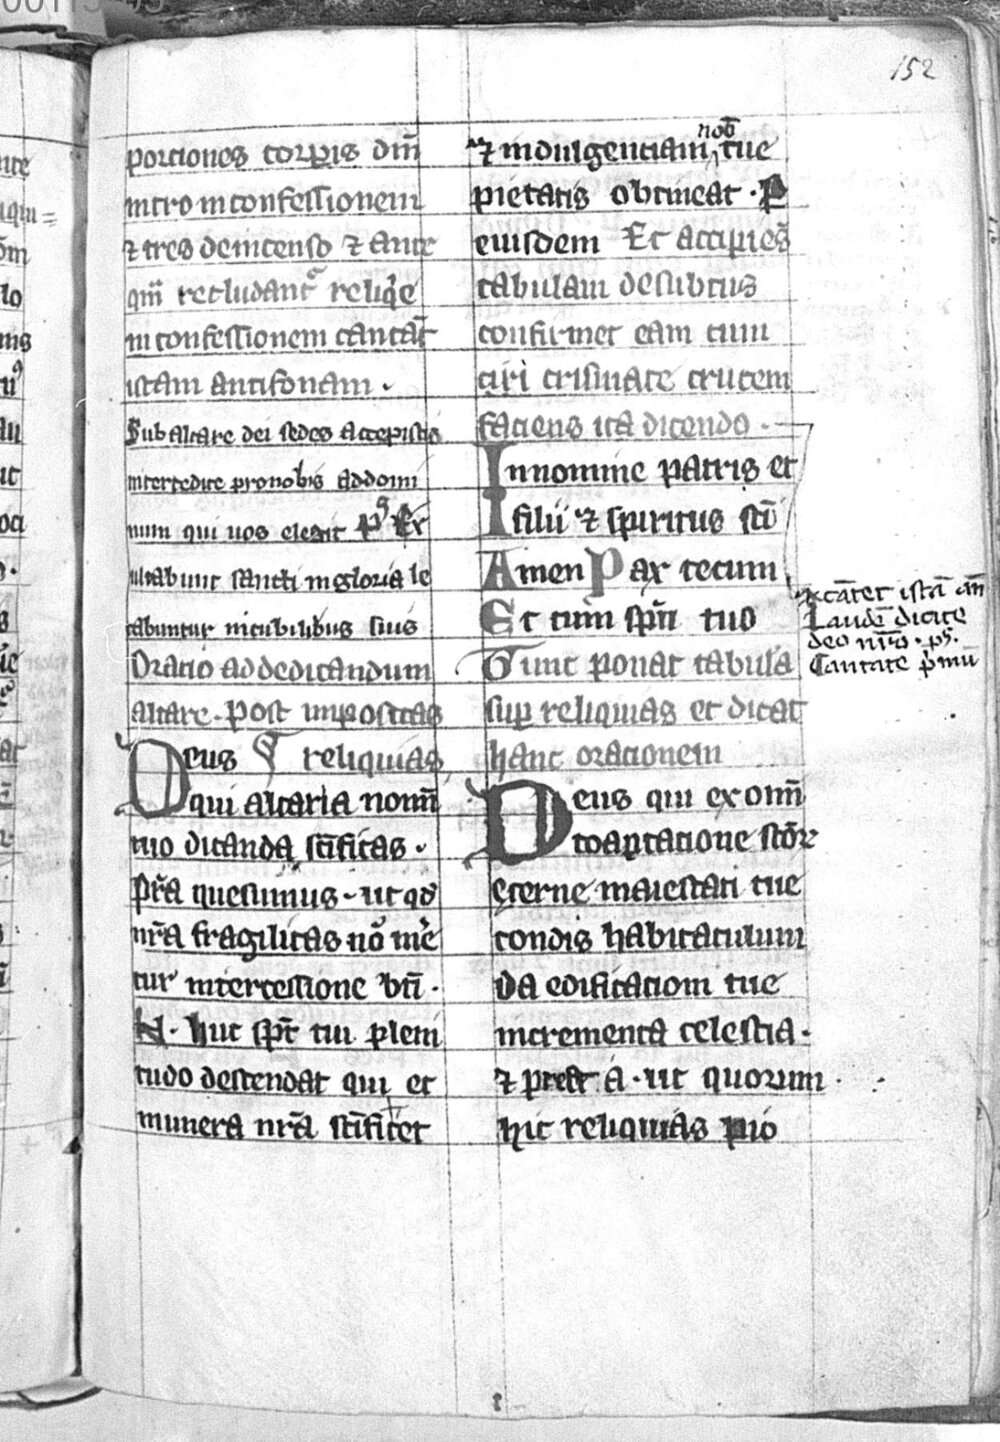 152
portiones corp̱is dn̄i
intro in confessionem
⁊ tres de incenso ⁊ ante
qm̄ recludant᷑ reliq̄e
in confessionem cantat̄
istam antifonam .
Sub altare dei sedes accepistis
intercedite pro nobis ad domi
num qui uos elegit ps̄ Ex
ultabunt sancti in gloria le
tabuntur in cubilibus suis
Oratio ad dedicandum
altare . Post impositas
Deus reliquias
qui altaria nomī
tuo dicanda sc̄ificas .
pr̄a quesumus . ut qd̄
nr̄a fragilitas nō mē
tur intercessione bt̄i .
N . huc sp̄c tui pleni
tudo descendat qui et
munera nr̄a sc̄ificet
⁊ indulgentiam nob̄ tue
pietatis obtineat . P
eiusdem Et accipies
tabulam desubtus
confirmet eam cum
ciri crismate crucem
faciens ita dicendo .
In nomine patris et
filii ⁊ spiritus sc̄i
Amen Pax tecum
Et cum sp̄u tuo
Tunc ponat tabula
sup reliquias et dicat
hanc orationem
Deus qui ex omī
coaptatione sc̄oꝝ
eterne maiestati tue
condis habitaculum
da edificationi tue
incrementa celestia .
⁊ prest a . ut quorum .
hic reliquias pio
cāter istā an̄
Laudē dicite
deo nr̄o . ps̄ .
Cantate p̄mū